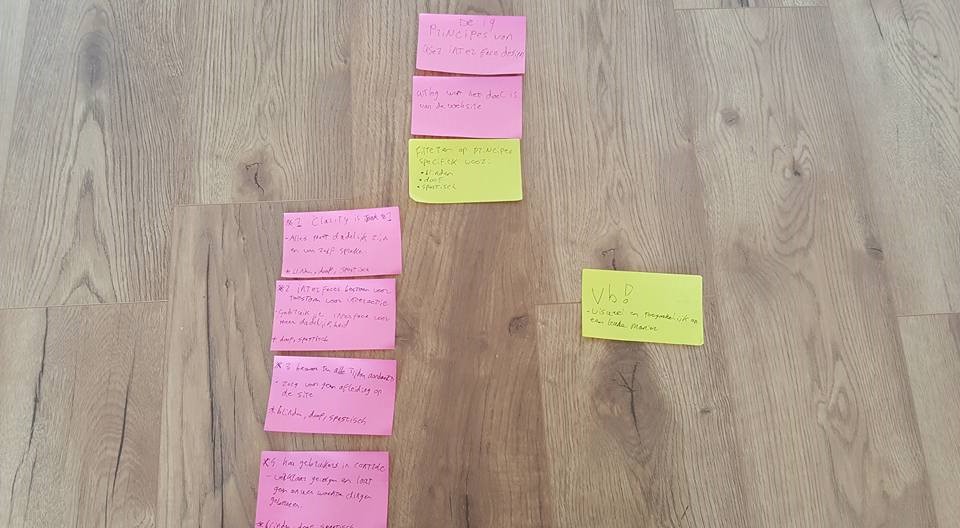 De 19
Principes van
user interface design
uitleg wat het doel is
van de website
Filteren op principes
specifiek voor:
• blinden
• doof
• spastisch
*1 Clarity is Job *1
- Alles moet duidelijk zijn
en van zelf spreken.
* blinden, doof, spastisch
*2 interfaces bestaan voor
toestaan voor interactie
- Gebruik je interface voor
meer duidelijkheid
* doof, spastisch
*3 bewaar ten alle tijden aandacht
- zorg voor geen afleiding op
de site
* blinden, doof, spastisch
*4 hou gebruikers in controle
- geen onverwachten dingen
gebeuren.
* blinden, doof, spastisch
Vb!
- visueel en toegankelijk op
een leuke manier